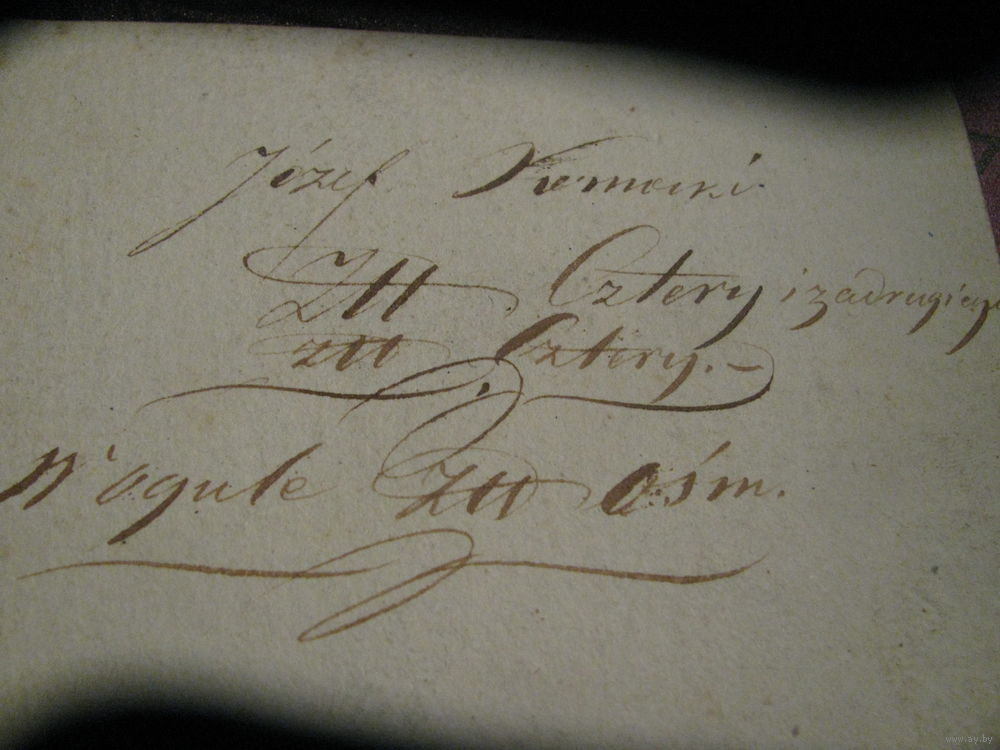 Józef
Złł Cztery i zadrugiego
złł Cztery. –
W'ogule złł ośm.
www.ay.by